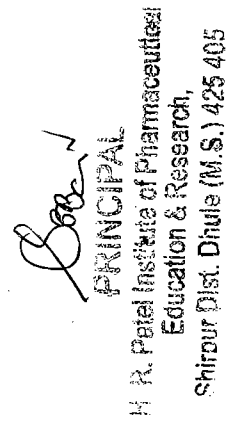 PRINCIPAL
H. R. Patel Institute of Pharmaceutical
Education & Research,
Shirpur Dist. Dhule (M.S.) 425 405